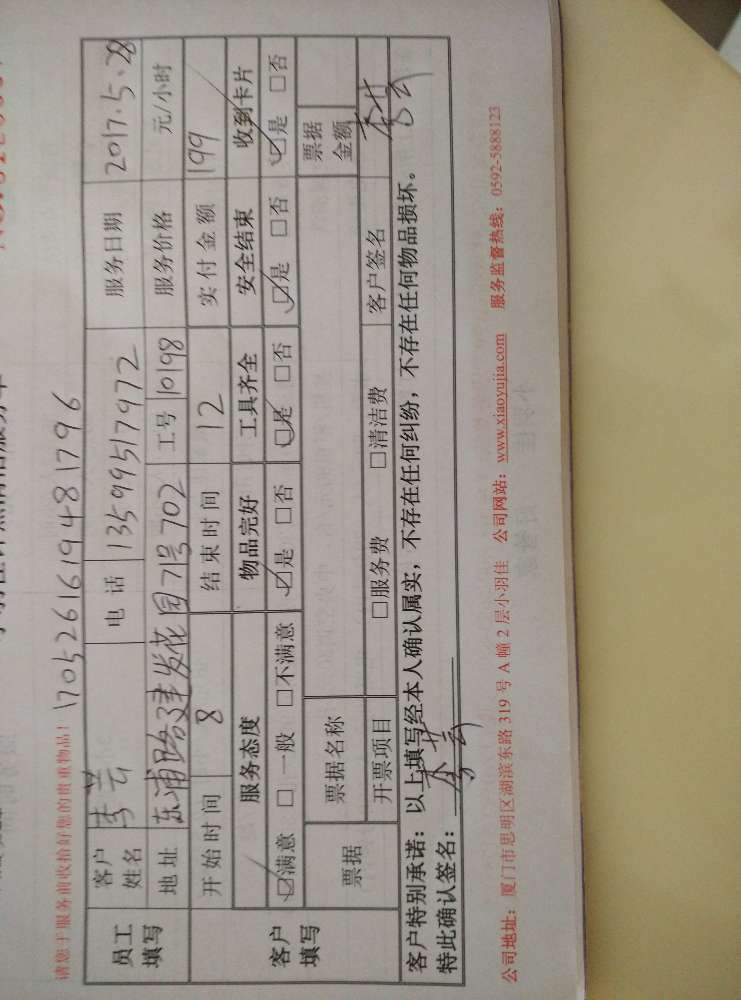 请您于服务前收拾好您的贵重物品! 170526161948179 6
员工填写 客户姓名 李芸 电话 13599517972 服务日期 2017.5.28
地址 东浦路建发花园71号702 工号 10198 服务价格 元/小时
客户填写 开始时间 8 结束时间 12 实付金额 199
服务态度 物品完好 工具齐全 安全结束 收到卡片
☑满意 □一般 □不满意 ☑是 □否 ☑是 □否 ☑是 □否 ☑是 □否
票据 票据名称 票据金额
开票项目 □服务费 □清洁费 客户签名 李芸
客户特别承诺:以上填写经本人确认属实,不存在任何纠纷,不存在任何物品损坏。
特此确认签名: 李芸
公司地址:厦门市思明区湖滨东路 319 号 A 幢 2 层小羽佳 公司网站:www.xiaoyujia.com 服务监督热线:0592-5888123